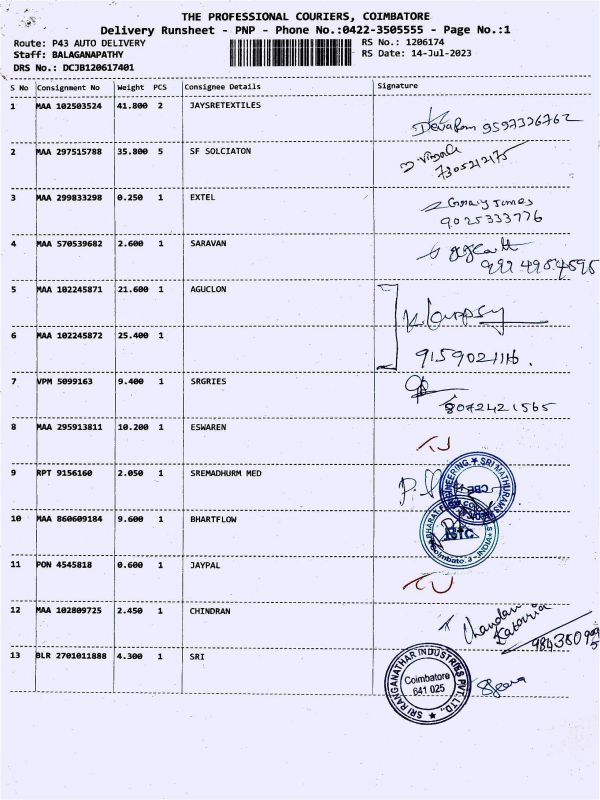 THE PROFESSIONAL COURIERS, COIMBATORE
Delivery Runsheet - PNP - Phone No.:0422-3505555 - Page No.:1
Route: P43 AUTO DELIVERY RS No.: 1206174
Staff: BALAGANAPATHY RS Date: 14-Jul-2023
DRS No.: DCJB120617401
S No Consignment No Weight PCS Consignee Details Signature
1 MAA 102503524 41.800 2 JAYSRETEXTILES
Devaram 9597326762
2 MAA 297515788 35.800 5 SF SOLCIATON
7305212175
3 MAA 299833298 0.250 1 EXTEL
9025333776
4 MAA 570539682 2.600 1 SARAVAN
5 MAA 102245871 21.600 1 AGUCLON
6 MAA 102245872 25.400 1
9159021116.
7 VPM 5099163 9.400 1 SRGRIES
8072421565
8 MAA 295913811 10.200 1 ESWAREN
9 RPT 9156160 2.050 1 SREMADHURM MED
10 MAA 860609184 9.600 1 BHARTFLOW
11 PON 4545818 0.600 1 JAYPAL
12 MAA 102809725 2.450 1 CHINDRAN
Chandan
Kataria
13 BLR 2701011888 4.300 1 SRI
SRI RANGANATHAR INDUSTRIES PVT. LTD.,
Coimbatore
641 025